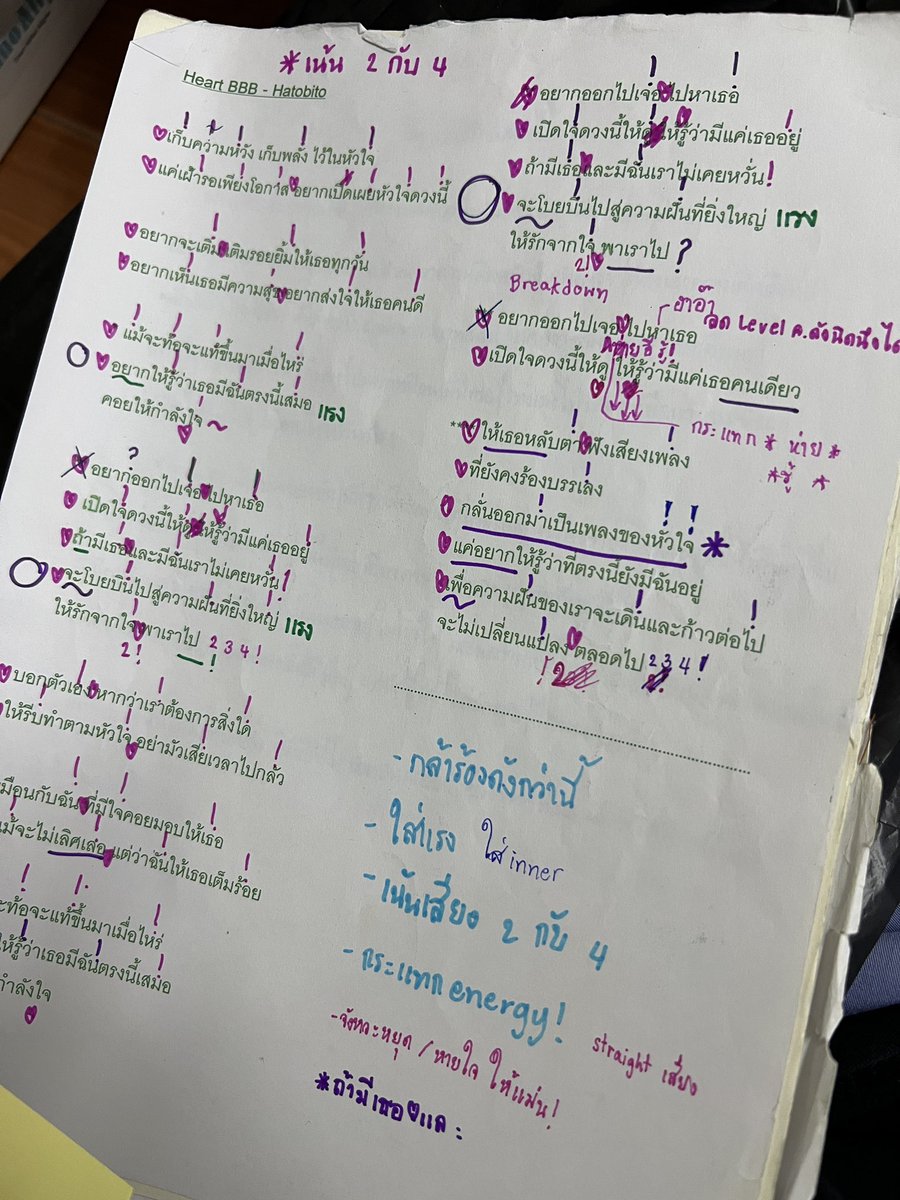 *เน้น 2 กับ 4
Heart BBB - Hatobito
เก็บความหวัง เก็บพลัง ไว้ในหัวใจ
แค่เฝ้ารอเพียงโอกาส อยากเปิดเผยหัวใจดวงนี้
อยากจะเติมเติมรอยยิ้มให้เธอทุกวัน
อยากเห็นเธอมีความสุข อยากส่งใจให้เธอคนดี
แม้จะท้อจะแท้ขึ้นมาเมื่อไหร่
อยากให้รู้ว่าเธอมีฉันตรงนี้เสมอ แรง
คอยให้กำลังใจ ~
อยากออกไปเจอ ไปหาเธอ
เปิดใจดวงนี้ให้ดู ให้รู้ว่ามีแค่เธออยู่
ถ้ามีเธอและมีฉันเราไม่เคยหวั่น!
จะโบยบินไปสู่ความฝันที่ยิ่งใหญ่ แรง
ให้รักจากใจ พาเราไป 2 3 4 !
2!
บอกตัวเองหากว่าเราต้องการสิ่งใด
ให้รีบทำตามหัวใจ อย่ามัวเสียเวลาไปกลัว
มือนกับฉัน ที่มีใจคอยมอบให้เธอ
ม้จะไม่เลิศเลอ แต่ว่าฉันให้เธอเต็มร้อย
ะท้อจะแท้ขึ้นมาเมื่อไหร่
ให้รู้ว่าเธอมีฉันตรงนี้เสมอ
กำลังใจ
อยากออกไปเจอ ไปหาเธอ
เปิดใจดวงนี้ให้ดู ให้รู้ว่ามีแค่เธออยู่
ถ้ามีเธอและมีฉันเราไม่เคยหวั่น!
จะโบยบินไปสู่ความฝันที่ยิ่งใหญ่ แรง
ให้รักจากใจ พาเราไป ?
2!
Breakdown
ลด Level ค.ดังนิดนึงได้
อยากออกไปเจอ ไปหาเธอ
เปิดใจดวงนี้ให้ดู ให้รู้ว่ามีแค่เธอคนเดียว
กระแทก * ห่าย *
*รู้ *
***ให้เธอหลับตา ฟังเสียงเพลง
ที่ยังคงร้องบรรเลง
กลั่นออกมาเป็นเพลงของหัวใจ *
แค่อยากให้รู้ว่าที่ตรงนี้ยังมีฉันอยู่
เพื่อความฝันของเราจะเดินและก้าวต่อไป
จะไม่เปลี่ยนแปลง ตลอดไป 2 3 4 !
! 2
- กล้าร้องดังกว่านี้
- ใส่แรง ใส่ inner
- เน้นเสียง 2 กับ 4
- กระแทก energy!
- จังหวะหยุด / หายใจ ให้แม่น!
straight เสียง
*ถ้ามีเธอ และ